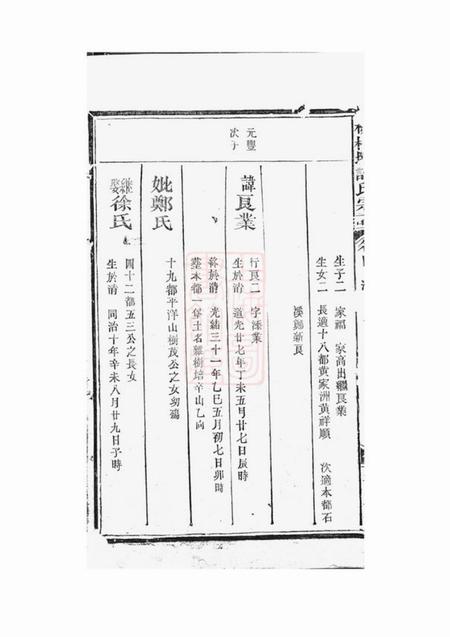 生子二 家福 家高出繼良業
生女二 長適十八都黃家洲黃祥順 次適本都石
溪鄭新良
元豐
次子
諱良業
行良二 字添業
生於清 道光廿七年丁未五月廿七日辰時
終於清 光緒三十一年乙巳五月初七日卯時
塟本都一保土名雞樹培辛山乙向
妣鄭氏
十九都平洋山樹茂公之女幼殤
繼娶徐氏
四十二都五三公之長女
生於清 同治十年辛未八月廿九日子時